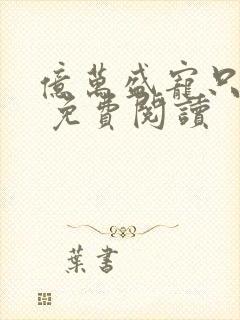 億萬盛寵只
免費閱讀
葉書